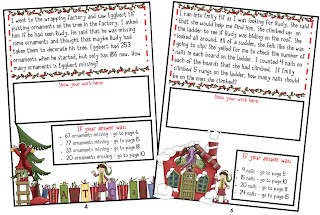 I went to the wrapping factory and saw Eggbert Elf
putting ornaments on the tree in the factory. I asked
him if he had seen Rudy. He said that he was missing
some ornaments and thought that maybe Rudy had
taken them to decorate his tree. Eggbert had 253
ornaments when he started, but only has 186 now. How
many ornaments is Eggbert missing?
Show your work here:
If your answer was:
67 ornaments missing - go to page 10
77 ornaments missing - go to page 15
33 ornaments missing - go to page 18
20 ornaments missing - go to page 8
4
I ran into Emily Elf as I was looking for Rudy. She said
that she would help me find him. She climbed up on
the ladder to see if Rudy was hiding on the roof. She
looked all around. All of a sudden, she felt like she was
going to slip! She yelled for me to check the number of
nails in each board on the ladder. I counted 4 nails on
each of the boards that she had climbed. If Emily
climbed 5 rungs on the ladder, how many nails should
be on the ones she climbed?
Show your work here:
If your answer was:
9 nails - go to page 5
15 nails - go to page 18
20 nails - go to page 8
24 nails - go to page 15
6